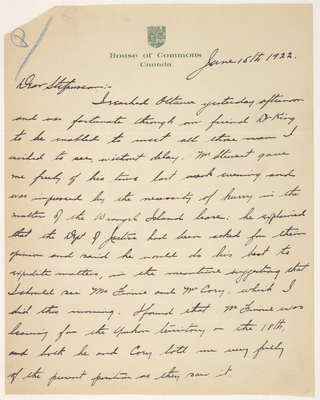 House of Commons
Canada
June 15th 1922.
Dear Stefansson:-
I reached Ottawa yesterday afternoon
and was fortunate through my friend Dr King
to be enabled to meet all those men I
wished to see, without delay. Mr Stewart gave
me freely of his time last evening and
was impressed by the necessity of hurry in the
matter of the Wrangel Island lease: he explained
that the Dept of Justice had been asked for their
opinion and said he would do his best to
expedite matters, in the meantime suggesting that
I should see Mr Finnie and Mr Cory, which I
did this morning. I found that Mr Finnie was
leaving for the Yukon territory on the 18th,
and both he and Cory told me very fully
of the present position as they saw it.